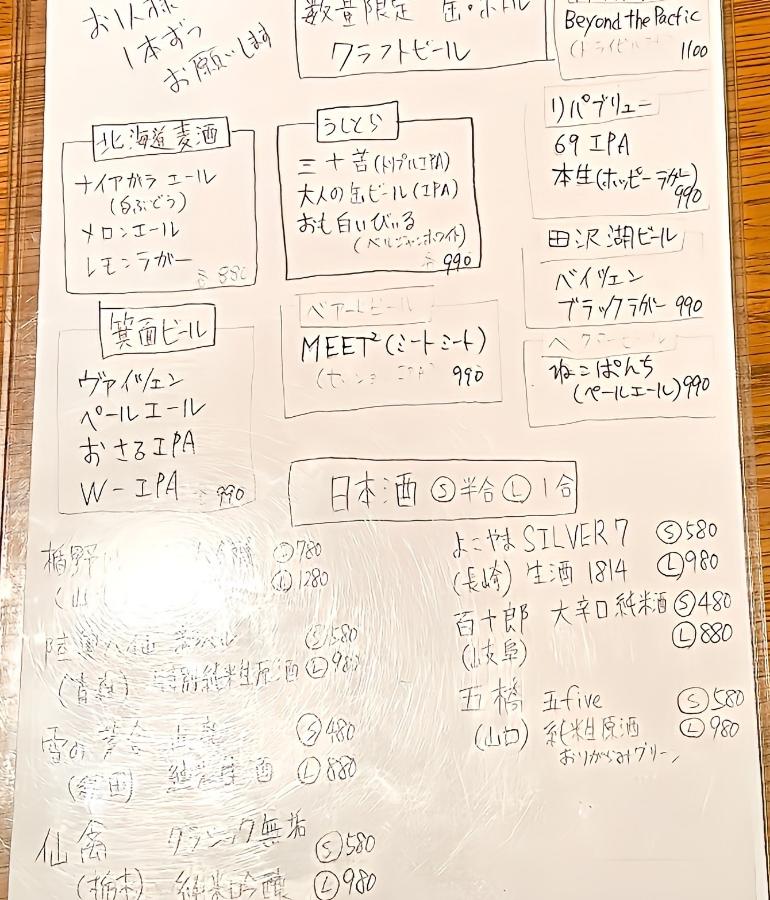 お1人様
1本ずつ
お願いします
数量限定 缶・ボトル
クラフトビール
Beyond the Pacfic
1100
北海道麦酒
ナイアガラ エール
(白ぶどう)
メロンエール
レモンラガー
各 880
うしとら
三十苦(トリプルIPA)
大人の缶ビール(IPA)
おも白いびいる
(ベルジャンホワイト)
各 990
リパブリュー
69 IPA
本生(ホッピーラガー)
990
田沢湖ビール
バイツェン
ブラックラガー 990
箕面ビール
ヴァイツェン
ペールエール
おさるIPA
W-IPA 各 990
ベアードビール
MEET²(ミートミート)
990
ねこぱんち
(ペールエール)990
日本酒 Ⓢ半合 Ⓛ1合
楯野 Ⓢ780
(山 Ⓛ1280
陸奥八仙 Ⓢ580
(青森) 特別純米生原酒 Ⓛ980
雪の茅舎 Ⓢ480
(秋田) 純米生酒 Ⓛ880
仙禽 クラシック無垢 Ⓢ580
(栃木) 純米吟醸 Ⓛ980
よこやま SILVER 7 Ⓢ580
(長崎) 生酒 1814 Ⓛ980
百十郎 大辛口純米酒 Ⓢ480
(岐阜) Ⓛ880
五橋 五five Ⓢ580
(山口) 純米生原酒 Ⓛ980
おりがらみグリーン